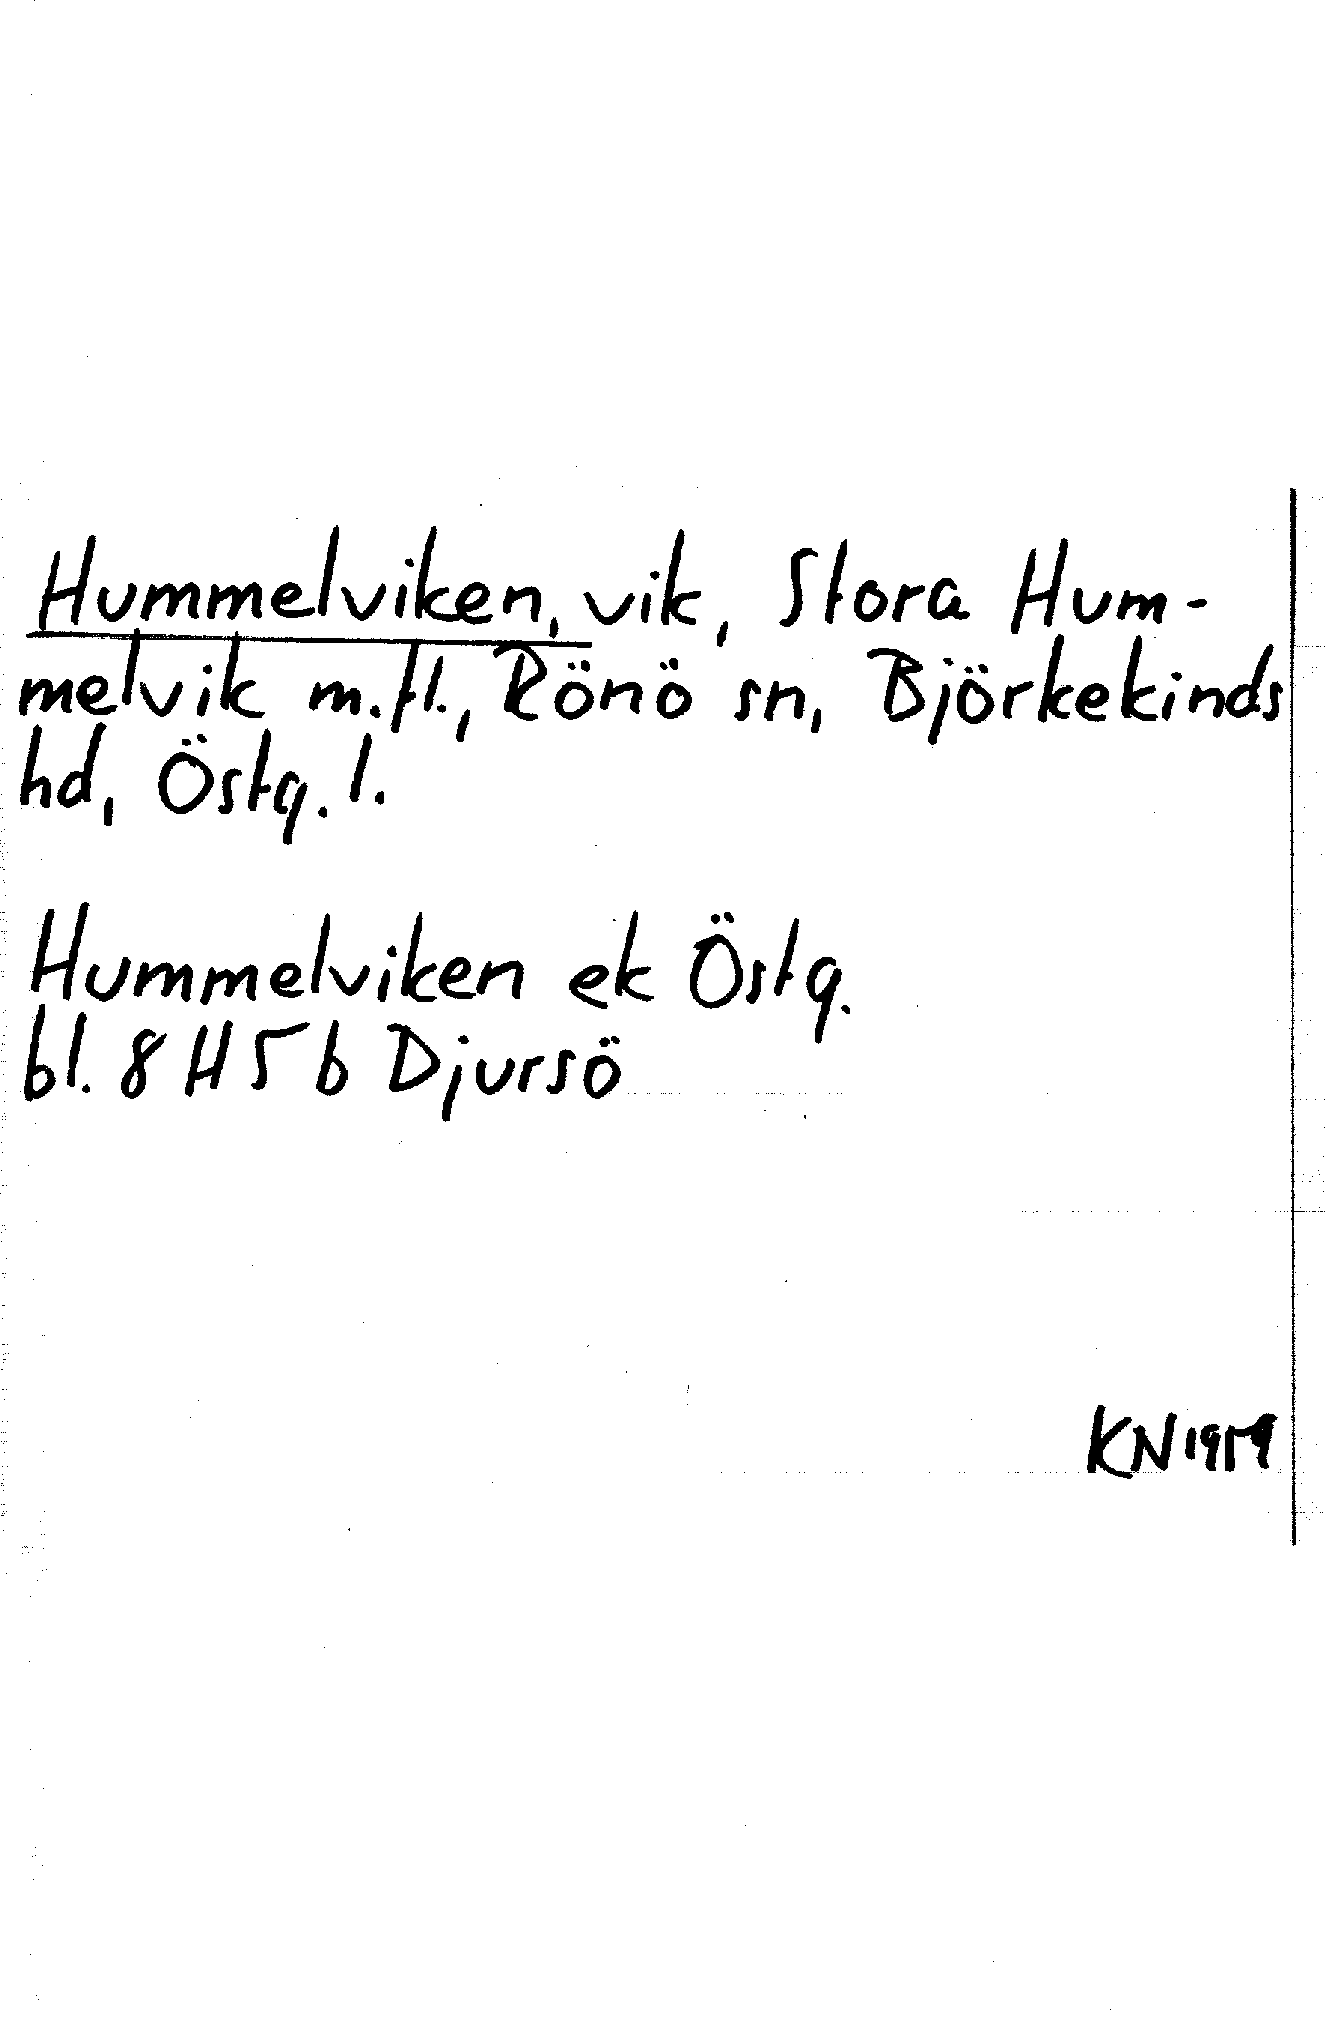 Hummelviken, vik, Stora Hum-
melvik m.fl., Rönö sn, Björkekinds
hd, Östg. l.
Hummelviken ek Östg.
bl. 8 H 5 b Djursö
KN 1959